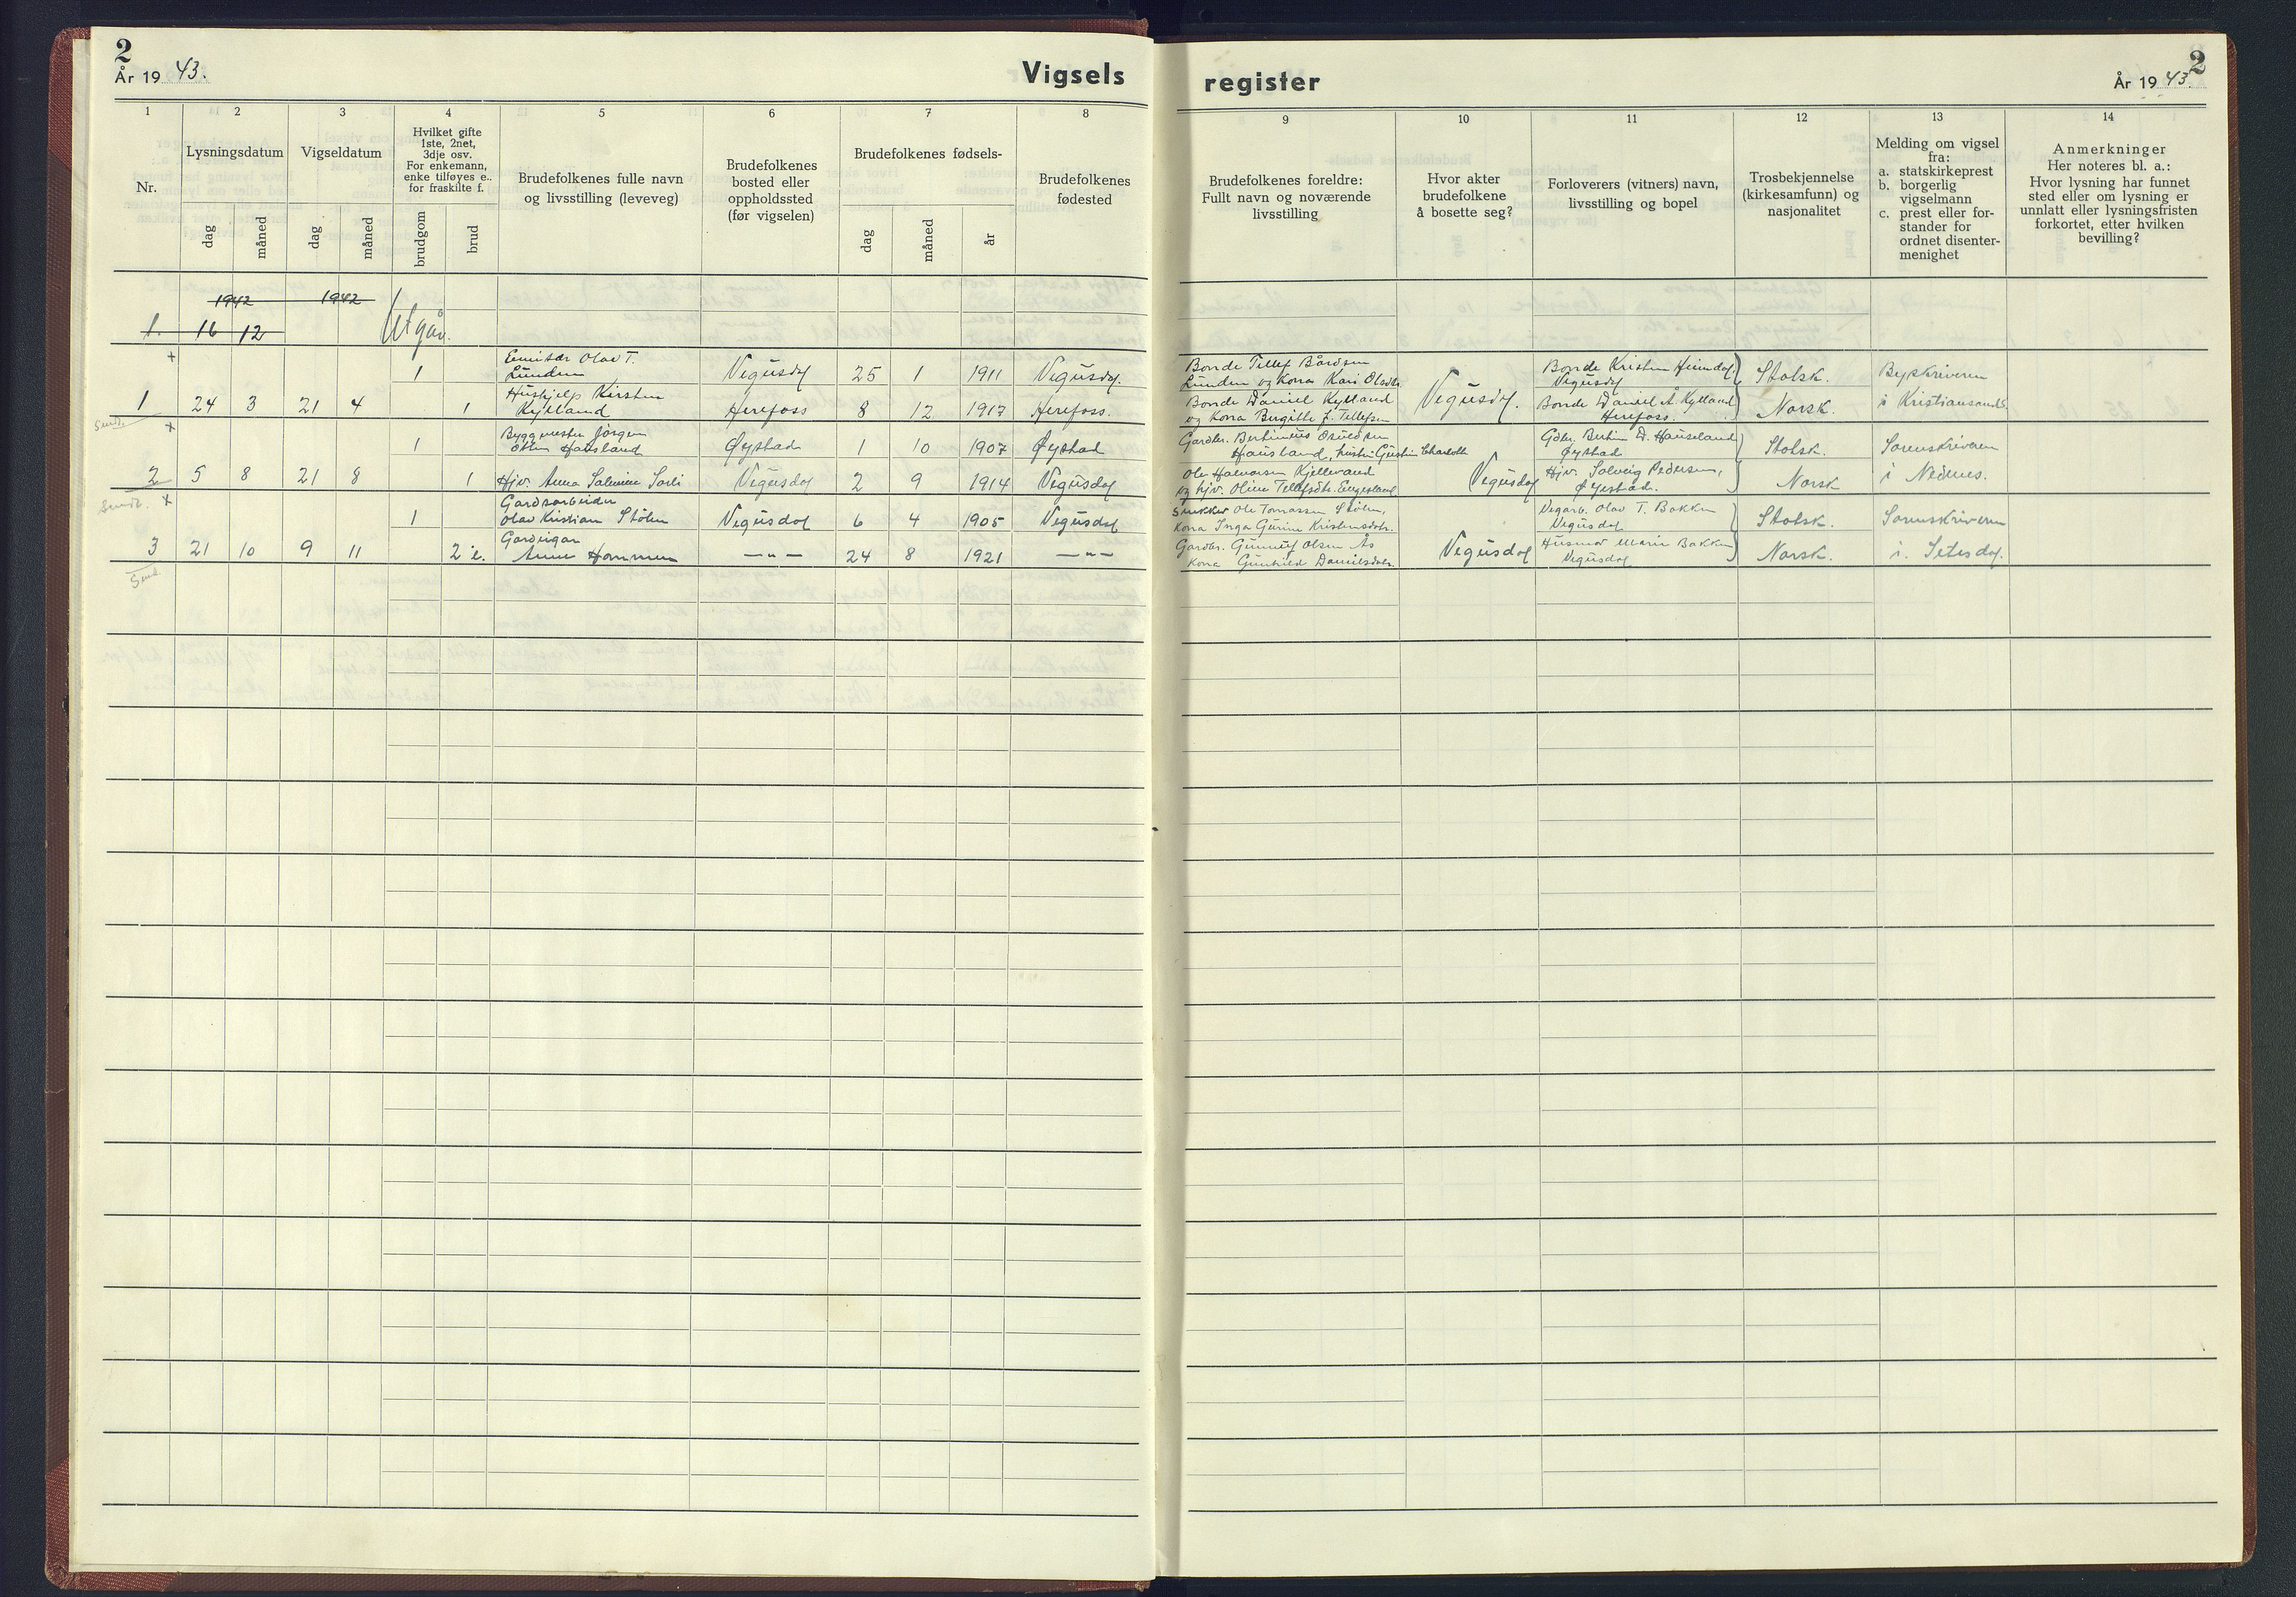 2
År 19 43.
Vigsels
register
2
År 19 43.
1
2
3
4
5
6
7
8
9
10
11
12
13
14
Nr.
Lysningsdatum
dag
måned
Vigseldatum
dag
måned
Hvilket gifte
1ste, 2net,
3dje osv.
For enkemann,
enke tilføyes e.,
for fraskilte f.
brudgom
brud
Brudefolkenes fulle navn
og livsstilling (leveveg)
Brudefolkenes
bosted eller
oppholdssted
(før vigselen)
Brudefolkenes fødsels-
dag
måned
år
Brudefolkenes
fødested
Brudefolkenes foreldre:
Fullt navn og noværende
livsstilling
Hvor akter
brudefolkene
å bosette seg?
Forloverers (vitners) navn,
livsstilling og bopel
Trosbekjennelse
(kirkesamfunn) og
nasjonalitet
Melding om vigsel
fra:
a. statskirkeprest
b. borgerlig
vigselmann
c. prest eller for-
stander for
ordnet disenter-
menighet
Anmerkninger
Her noteres bl. a.:
Hvor lysning har funnet
sted eller om lysning er
unnlatt eller lysningsfristen
forkortet, etter hvilken
bevilling?
1942 1942
1. 16 12 Utgår.
+
1 Olav T.
Lunden Vegusdal 25 1 1911 Vegusdal.
1 24 3 21 4 1 Hushjelp Kirsten
Kylland Herefoss 8 12 1917 Herefoss.
Bonde Tellef Bårdsen
Lunden og kona Kari Olsdtr.
Bonde Daniel Kylland
og kona Birgitte J. Tellefsen
Vegusdal.
Bonde Kristen Heimdal
Vegusdal
Bonde Daniel Å. Kylland
Herefoss.
Statsk.
Norsk.
Byskriveren
i Kristiansand S.
Sendt.
+
1 Byggmester Jørgen
Hausland Øystad 1 10 1907 Øystad
2 5 8 21 8 1 Hjv. Anna Salmine Sarli Vegusdal 2 9 1914 Vegusdal
Gardbr. Bertinius
Hausland, Charlotte
Ole Halvorsen Kjellevand
og hjv. Oline Tellefsdtr. Engesland
Vegusdal
Gdbr. Bertin D. Hausland
Øystad
Hjv. Solveig Pedersen,
Øyestad.
Statsk.
Norsk
Sorenskriveren
i Nedenes.
Sendt. +
1 Gardsarbeider
Olav Kristian Stølen Vegusdal 6 4 1905 Vegusdal
3 21 10 9 11 2 e. Gardeigar
Anne Hommen —"— 24 8 1921 —"—
Ole Tomassen Stølen,
kona Inga Gurine Kristensdotr.
Gardbr. Gunnulf Olsen Ås
kona Gunhild Danielsdotr.
Vegusdal
Vegarb. Olav T. Bakken
Vegusdal
Husmor Marie Bakken
Vegusdal
Statsk.
Norsk.
Sorenskriveren
i. Setesdal.
Send.